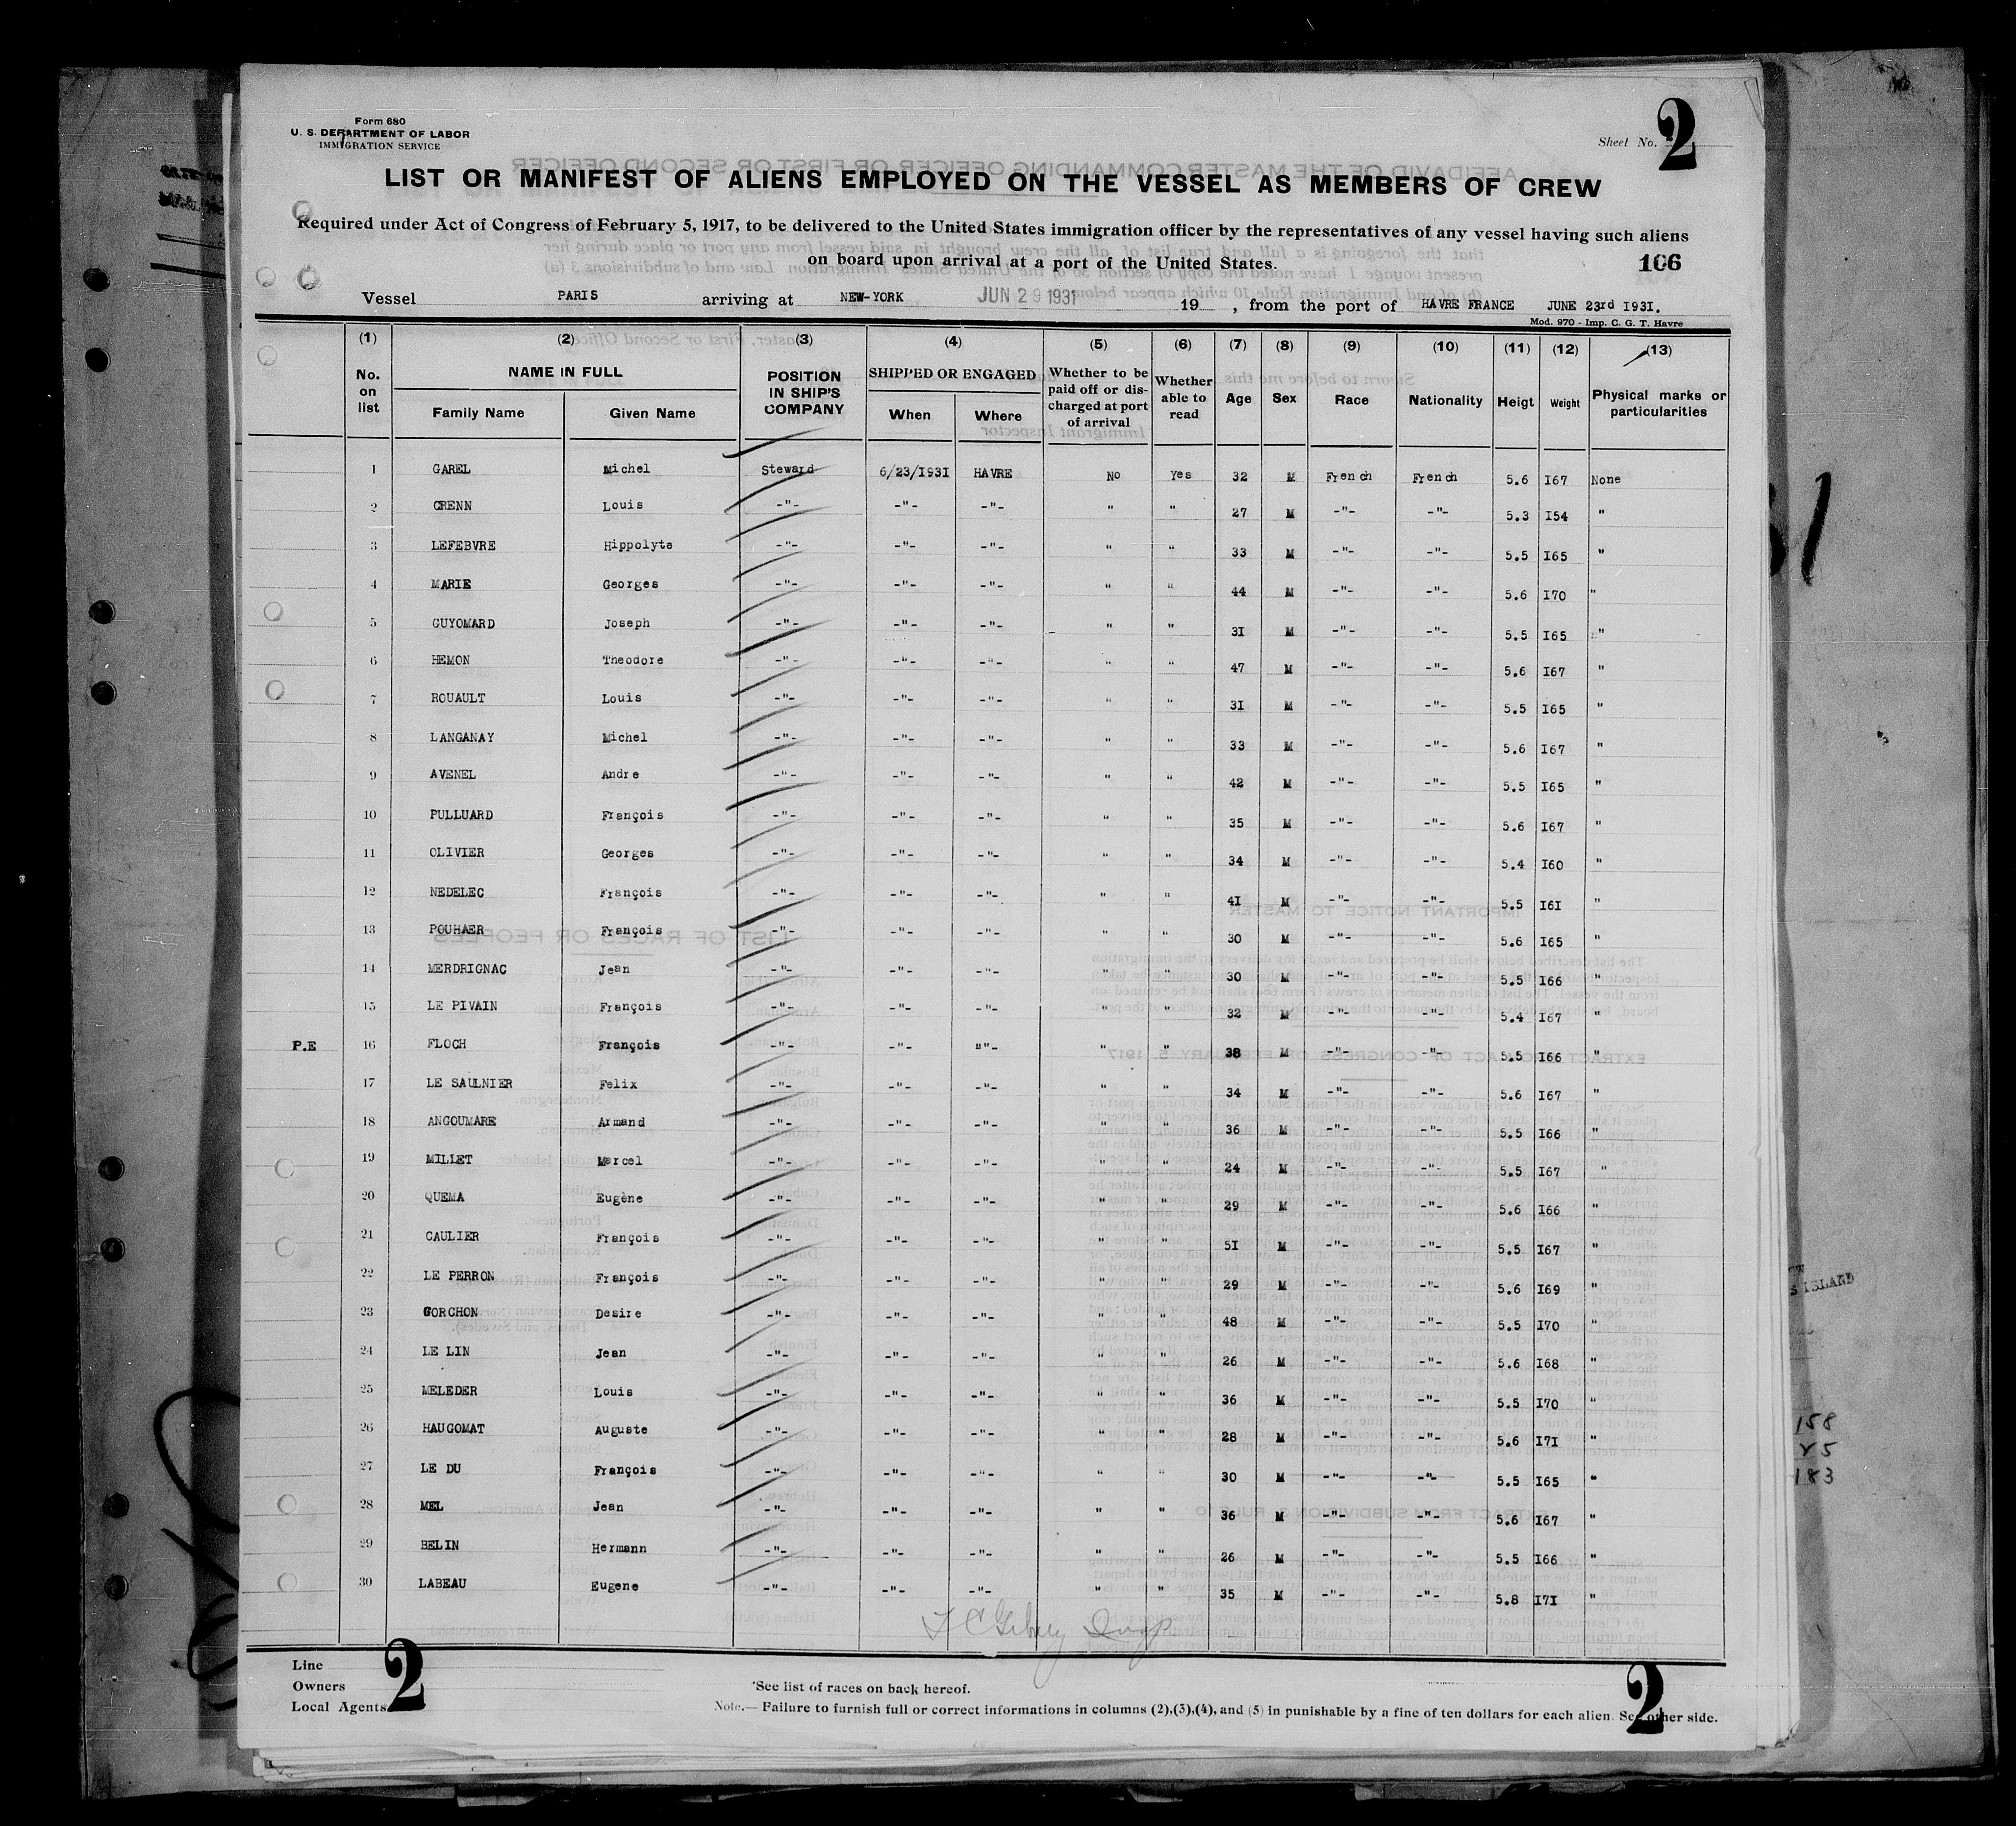 Form 680
U. S. DEPARTMENT OF LABOR
IMMIGRATION SERVICE
Sheet No. 2
LIST OR MANIFEST OF ALIENS EMPLOYED ON THE VESSEL AS MEMBERS OF CREW
Required under Act of Congress of February 5, 1917, to be delivered to the United States immigration officer by the representatives of any vessel having such aliens
on board upon arrival at a port of the United States.
106
Vessel PARIS arriving at NEW-YORK JUN 29 1931 19 , from the port of HAVRE FRANCE JUNE 23rd I93I.
Mod. 970 - Imp. C. G. T. Havre
(1) (2) (3) (4) (5) (6) (7) (8) (9) (10) (11) (12) (13)
No. on list NAME IN FULL Family Name Given Name POSITION IN SHIP'S COMPANY SHIPPED OR ENGAGED When Where Whether to be paid off or discharged at port of arrival Whether able to read Age Sex Race Nationality Heigt Weight Physical marks or particularities
1 GAREL Michel Steward 6/23/I93I HAVRE No Yes 32 M French French 5.6 I67 None
2 CRENN Louis -"- -"- -"- " " 27 M -"- -"- 5.3 I54 "
3 LEFEBVRE Hippolyte -"- -"- -"- " " 33 M -"- -"- 5.5 I65 "
4 MARIE Georges -"- -"- -"- " " 44 M -"- -"- 5.6 I70 "
5 GUYOMARD Joseph -"- -"- -"- " " 3I M -"- -"- 5.5 I65 "
6 HEMON Theodore -"- -"- -"- " " 47 M -"- -"- 5.6 I67 "
7 ROUAULT Louis -"- -"- -"- " " 3I M -"- -"- 5.5 I65 "
8 LANGANAY Michel -"- -"- -"- " " 33 M -"- -"- 5.6 I67 "
9 AVENEL Andre -"- -"- -"- " " 42 M -"- -"- 5.5 I65 "
10 PULLUARD François -"- -"- -"- " " 35 M -"- -"- 5.6 I67 "
11 OLIVIER Georges -"- -"- -"- " " 34 M -"- -"- 5.4 I60 "
12 NEDELEC François -"- -"- -"- " " 4I M -"- -"- 5.5 I6I "
13 POUHAER François -"- -"- -"- " " 30 M -"- -"- 5.6 I65 "
14 MERDRIGNAC Jean -"- -"- -"- " " 30 M -"- -"- 5.5 I66 "
15 LE PIVAIN François -"- -"- -"- " " 32 M -"- -"- 5.4 I67 "
P.E 16 FLOCH François -"- -"- ""- " " 38 M -"- -"- 5.5 I66 "
17 LE SAULNIER Felix -"- -"- -"- " " 34 M -"- -"- 5.6 I67 "
18 ANGOUMARE Armand -"- -"- -"- " " 36 M -"- -"- 5.5 I66 "
19 MILLET Marcel -"- -"- -"- " " 24 M -"- -"- 5.5 I67 "
20 QUEMA Eugène -"- -"- -"- " " 29 M -"- -"- 5.6 I66 "
21 CAULIER François -"- -"- -"- " " 5I M -"- -"- 5.5 I67 "
22 LE PERRON François -"- -"- -"- " " 29 M -"- -"- 5.6 I69 "
23 GORCHON Desire -"- -"- -"- " " 48 M -"- -"- 5.5 I70 "
24 LE LIN Jean -"- -"- -"- " " 26 M -"- -"- 5.6 I68 "
25 MELEDER Louis -"- -"- -"- " " 36 M -"- -"- 5.5 I70 "
26 HAUGOMAT Auguste -"- -"- -"- " " 28 M -"- -"- 5.6 I7I "
27 LE DU François -"- -"- -"- " " 30 M -"- -"- 5.5 I65 "
28 MEL Jean -"- -"- -"- " " 36 M -"- -"- 5.6 I67 "
29 BELIN Hermann -"- -"- -"- " " 26 M -"- -"- 5.5 I66 "
30 LABEAU Eugene -"- -"- -"- " " 35 M -"- -"- 5.8 I7I "
Line
Owners
Local Agents
2
See list of races on back hereof.
Note.— Failure to furnish full or correct informations in columns (2),(3),(4), and (5) in punishable by a fine of ten dollars for each alien. See other side.
2
ISLAND
158
25
183